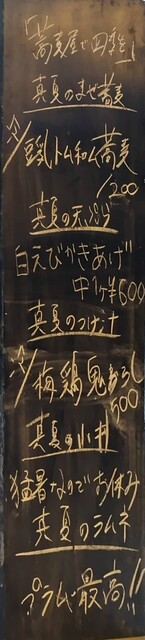 「蕎麦屋で四季を」
真夏のまぜ蕎麦
冷/豆乳トムヤム蕎麦
1200
真夏の天ぷら
白えびかきあげ
中1ヶ¥600
真夏のつけ汁
冷/梅鶏鬼おろし
500
真夏の小丼
猛暑なのでお休み
真夏のラムネ
プラム・最高!!